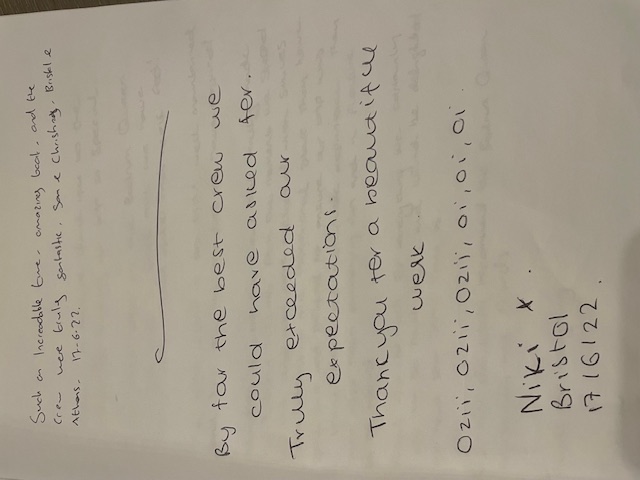 Such an Incredible time - amazing boat - and the
Crew were truly fantastic. Sam & Christine, Bristol &
Athens. 17-6-22.
By far the best crew we
could have asked for.
Trully exceeded our
expectations.
Thankyou for a beautiful
week.
Ozii, ozii, ozii, oi, oi, oi.
Niki x.
Bristol
17/6/22.